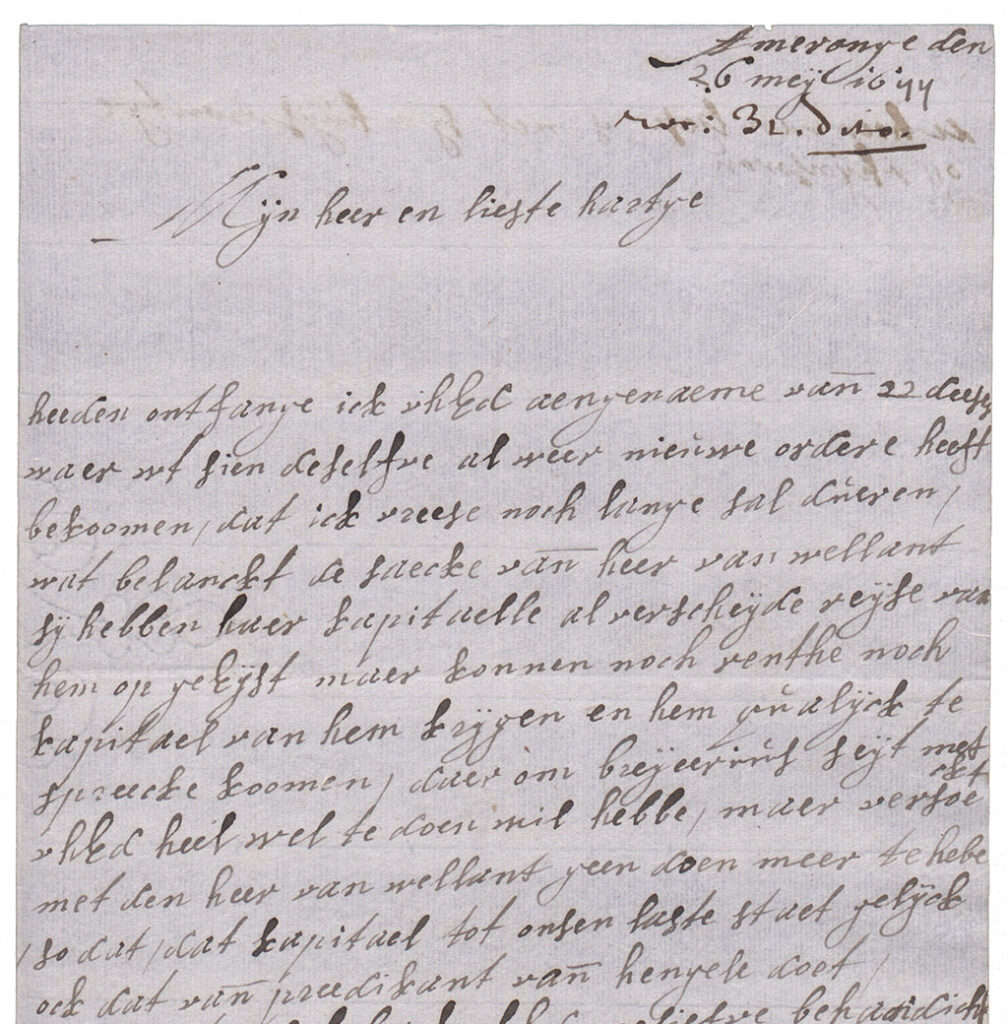 Ameronge den
26 meij 1677
rec: 31. dito.
Mijn heer en lieste hartge
heeden ontfange ick uhEd aengenaeme van 22 deeser
waer wt sien deselfve al weer nieuwe ordere heeft
bekoomen, dat ick vreese noch lange sal dueren,
wat belanckt de saecke van heer van wellant
sij hebben haer kapitaelle al verscheijde reijse van
hem op geEijst maer konnen noch renthe noch
kapitael van hem krijgen en hem qualijck te
spreecke koomen, daer om breijeerus seijt met
uhEd heel wel te doen wil hebbe, maer versoeckt
met den heer van wellant geen doen meer te hebe
so dat, dat kapitael tot onsen laste staet gelijck
ock dat van preedikant van hengele doet,